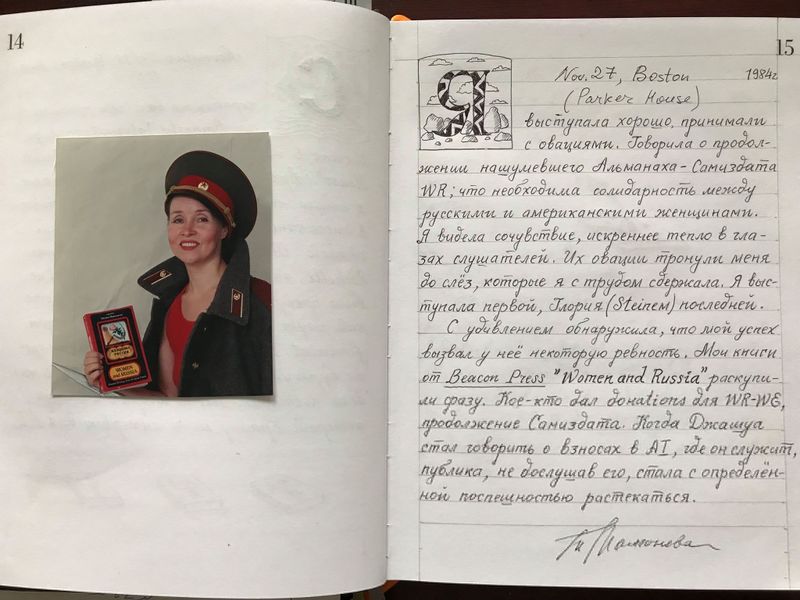 14
WOMEN
AND RUSSIA
15
Nov. 27, Boston 1984г
(Parker House)
Я
выступала хорошо, принимали
с овациями. Говорила о продол-
жении нашумевшего Альманаха-Самиздата
WR; что необходима солидарность между
русскими и американскими женщинами.
Я видела сочувствие, искреннее тепло в гла-
зах слушателей. Их овации тронули меня
до слёз, которые я с трудом сдержала. Я выс-
тупала первой, Глория (Steinem) последней.
С удивлением обнаружила, что мой успех
вызвал у неё некоторую ревность. Мои книги
от Beacon Press "Women and Russia" раскупи-
ли сразу. Кое-кто дал donations для WR-WE,
продолжение Самиздата. Когда Джашуа
стал говорить о взносах в AI, где он служит,
публика, не дослушав его, стала с определён-
ной поспешностью растекаться.